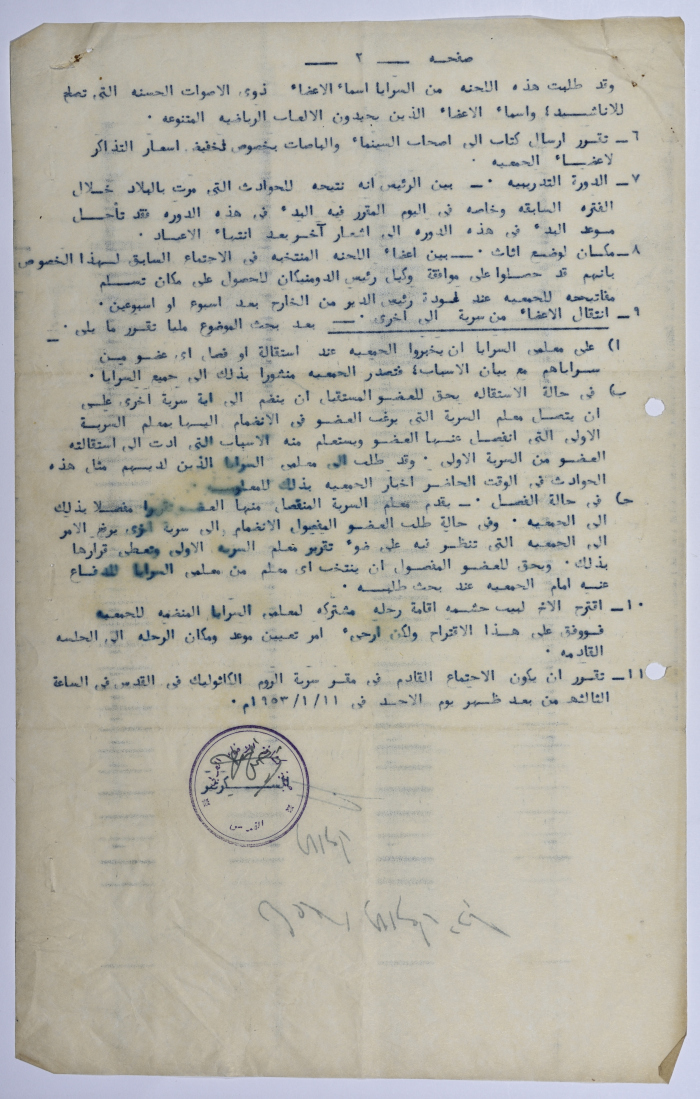 صفحه — ٢ —
وقد طلبت هذه اللجنه من السرايا اسماء الاعضاء ذوى الاصوات الحسنه التى تصلح
للاناشيد، واسماء الاعضاء الذين يجيدون الالعاب الرياضيه المتنوعه .
٦ـ تقرر ارسال كتاب الى اصحاب السينماء والباصات بخصوص تخفيض اسعار التذاكر
لاعضاء الجمعيه .
٧ـ الدورة التدريبيه .ـ بين الرئيس انه نتيجه للحوادث التى مرت بالبلاد خلال
الفتره السابقه وخاصه فى اليوم المقرر فيه البدء فى هذه الدوره فقد تأجل
موعد البدء فى هذه الدوره الى اشعار آخر بعد انتهاء الاعياد .
٨ـ مكان لوضع اثاث .ـ بين اعضاء اللجنه المنتخبه فى الاجتماع السابق لهذا الخصوص
بانهم قد حصلوا على موافقة وكيل رئيس الدومنيكان للحصول على مكان تسلم
مفاتيحه للجمعيه عند عودة رئيس الدير من الخارج بعد اسبوع او اسبوعين .
٩ـ انتقال الاعضاء من سرية الى اخرى .ـ بعد بحث الموضوع مليا تقرر ما يلى .ـ
ا) على معلمى السرايا ان يخبروا الجمعيه عند استقالة او فصل اى عضو من
سراياهم مع بيان الاسباب، فتصدر الجمعيه منشورا بذلك الى جميع السرايا .
ب) فى حالة الاستقاله يحق للعضو المستقيل ان ينضم الى اية سرية اخرى على
ان يتصل معلم السرية التى يرغب العضو فى الانضمام اليها بمعلم السرية
الاولى التى انفصل عنها العضو ويستعلم منه الاسباب التى ادت الى استقالته
العضو من السرية الاولى . وقد طلب الى معلمى السرايا الذين لديهم مثل هذه
الحوادث فى الوقت الحاضر اخبار الجمعيه بذلك
ح) فى حالة الفصل .ـ يقدم معلم السرية المنفصل منها العضو تقريرا مفصلا بذلك
الى الجمعيه . وفى حالة طلب العضو المفصول الانضمام الى سرية اخرى يرفع الامر
الى الجمعيه التى تنظر فيه على ضوء تقرير معلم السريه الاولى وتعطى قرارها
بذلك . ويحق للعضو المفصول ان ينتخب اى معلم من معلمى السرايا للدفاع
عنه امام الجمعيه عند بحث طلبه .
١٠ـ اقترح الاخ لبيب حشمه اقامة رحله مشتركه لمعلمى السرايا المنضمه للجمعيه
فووفق على هذا الاقتراح ولكن ارجىء امر تعيين موعد ومكان الرحله الى الجلسه
القادمه .
١١ـ تقرر ان يكون الاجتماع القادم فى مقر سرية الروم الكاثوليك فى القدس فى الساعة
الثالثه من بعد ظهر يوم الاحد فى ١٩٥٣/١/١١م .
القدس